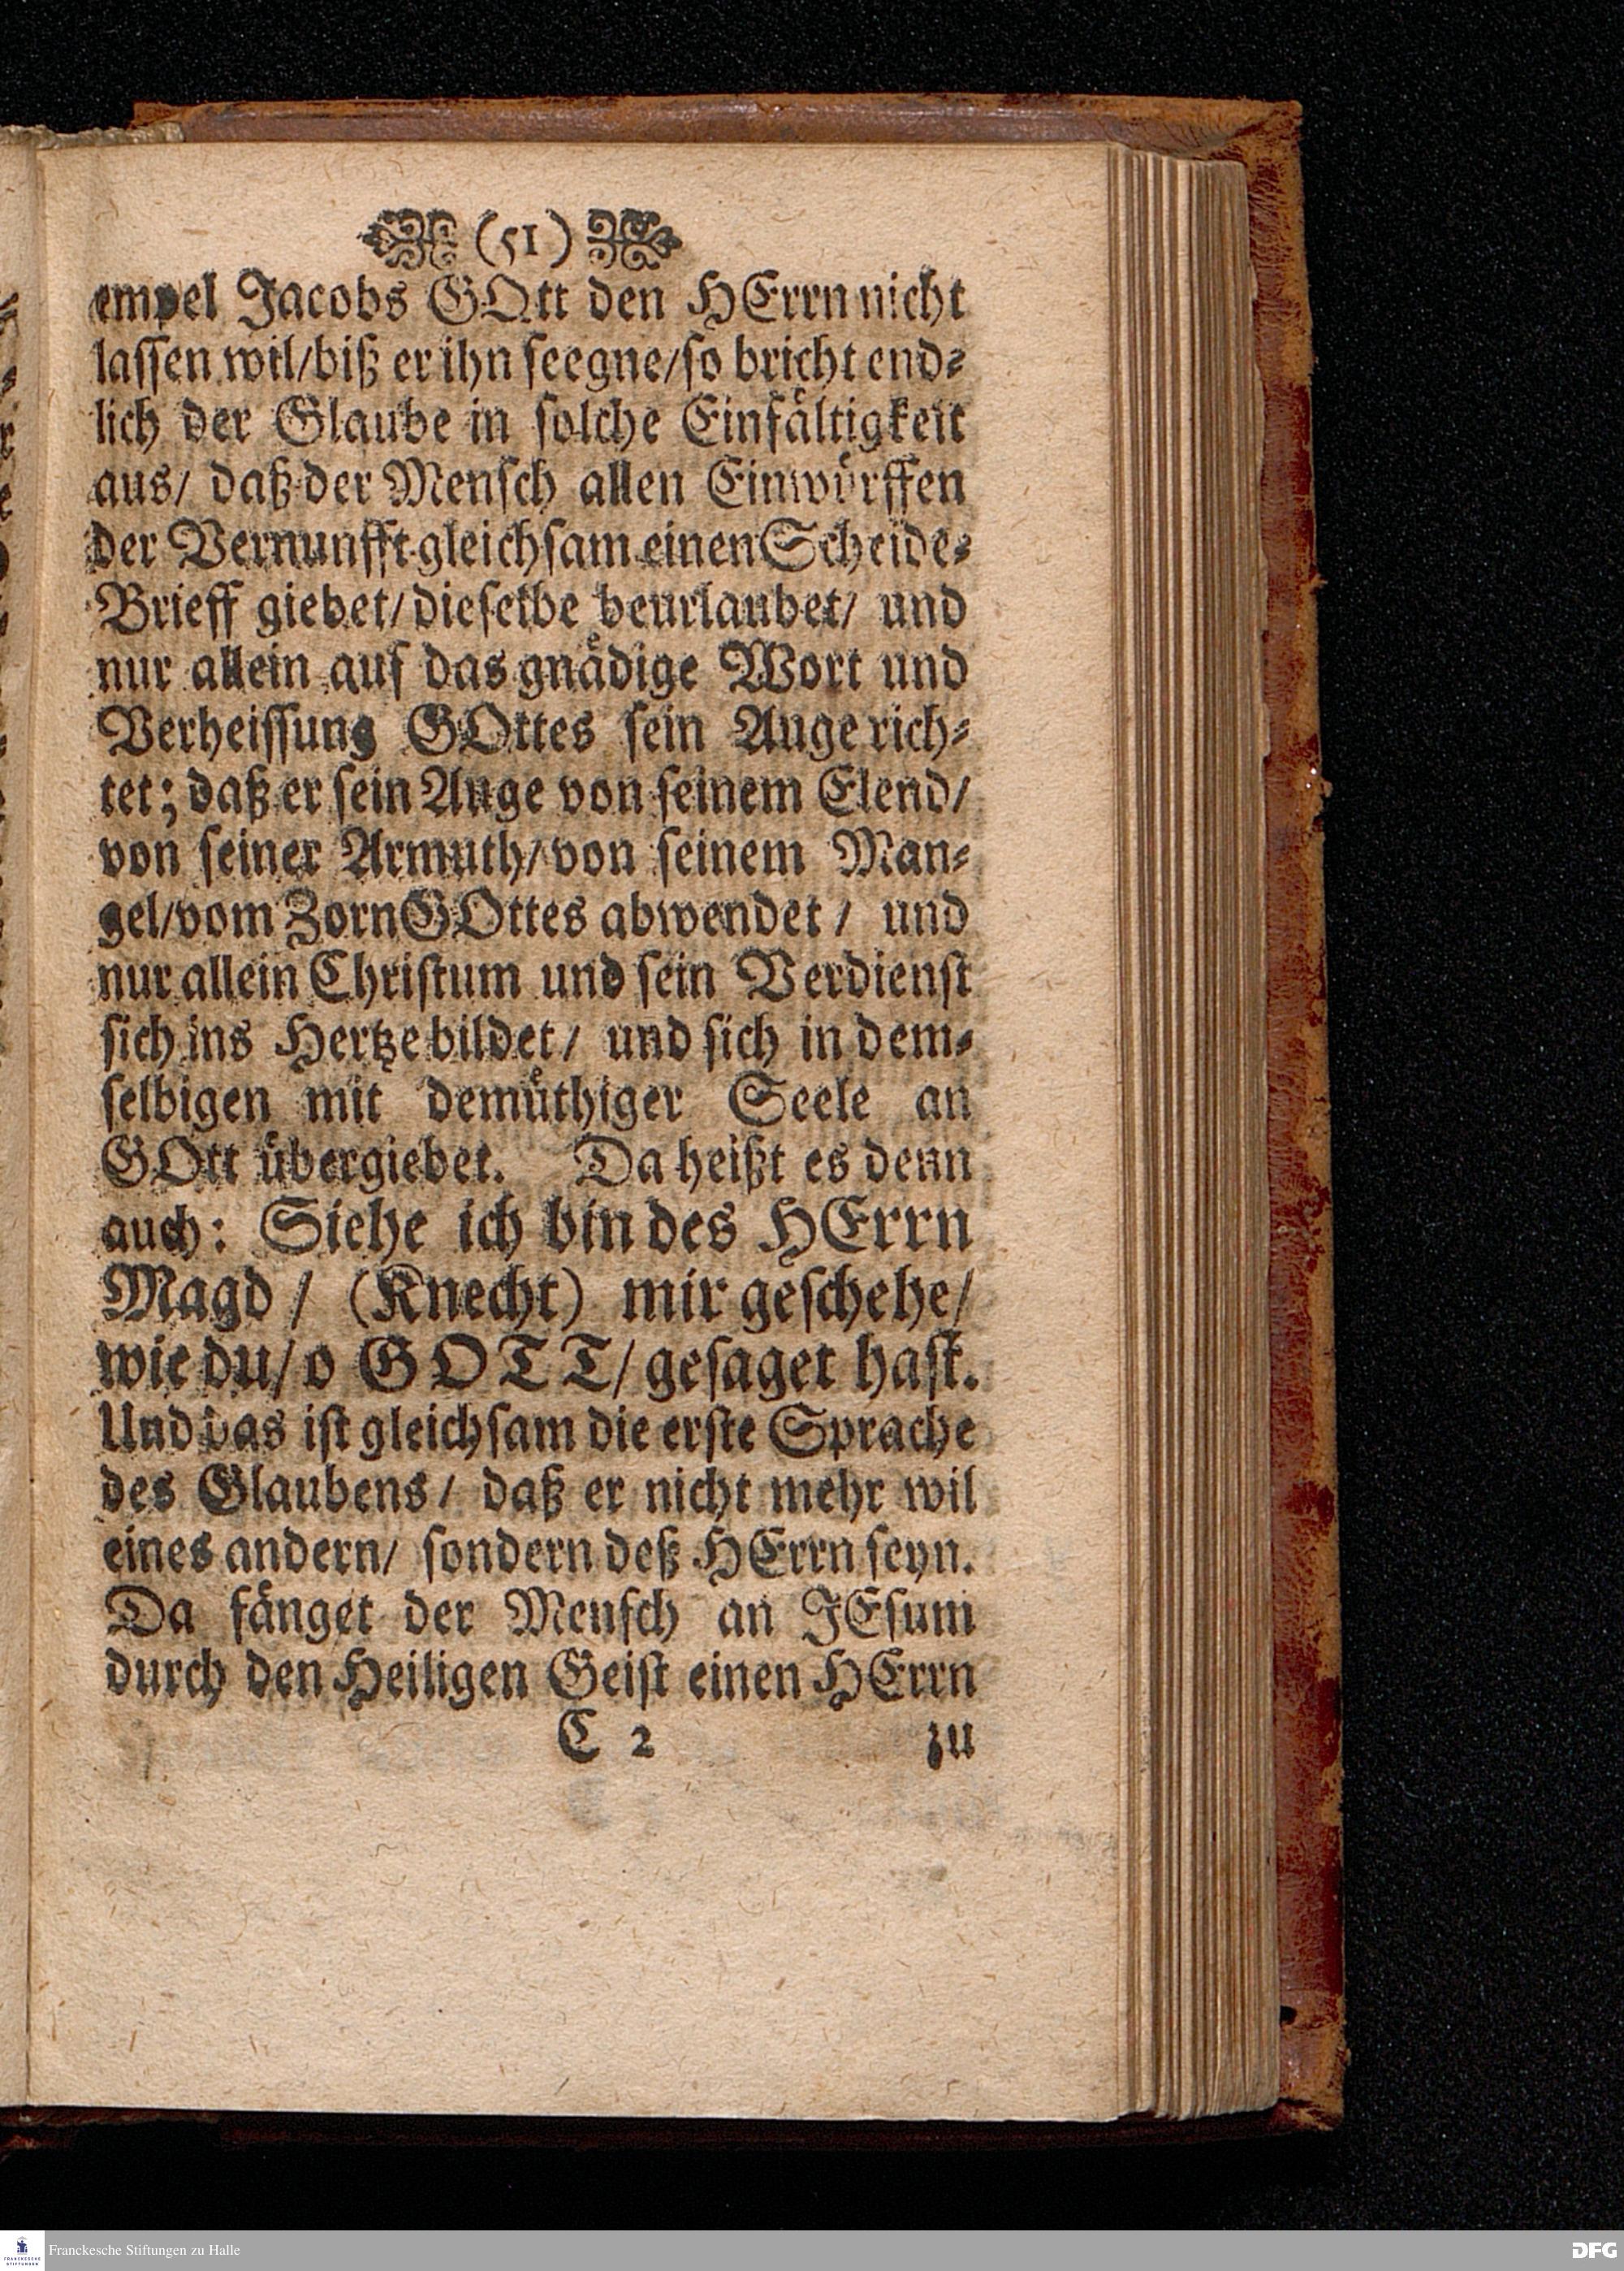 (51)
empel Jacobs GOtt den HErrn nicht
lassen wil/biß er ihn seegne/so bricht end-
lich der Glaube in solche Einfältigkeit
aus/ daß der Mensch allen Einwürffen
der Vernunfft gleichsam einen Scheide-
Brieff giebet/dieselbe beurlaubet/ und
nur allein auf das gnädige Wort und
Verheissung GOttes sein Auge rich-
tet; daß er sein Auge von seinem Elend/
von seiner Armuth/von seinem Man-
gel/vom Zorn GOttes abwendet/ und
nur allein Christum und sein Verdienst
sich ins Hertze bildet/ und sich in dem-
selbigen mit demüthiger Seele an
GOtt übergiebet. Da heißt es denn
auch: Siehe ich bin des HErrn
Magd/ (Knecht) mir geschehe/
wie du/o GOTT/gesaget hast.
Und das ist gleichsam die erste Sprache
des Glaubens/ daß er nicht mehr wil
eines andern/ sondern deß HErrn seyn.
Da fänget der Mensch an JEsum
durch den Heiligen Geist einen HErrn
C 2 zu
Franckesche Stiftungen zu Halle
DFG